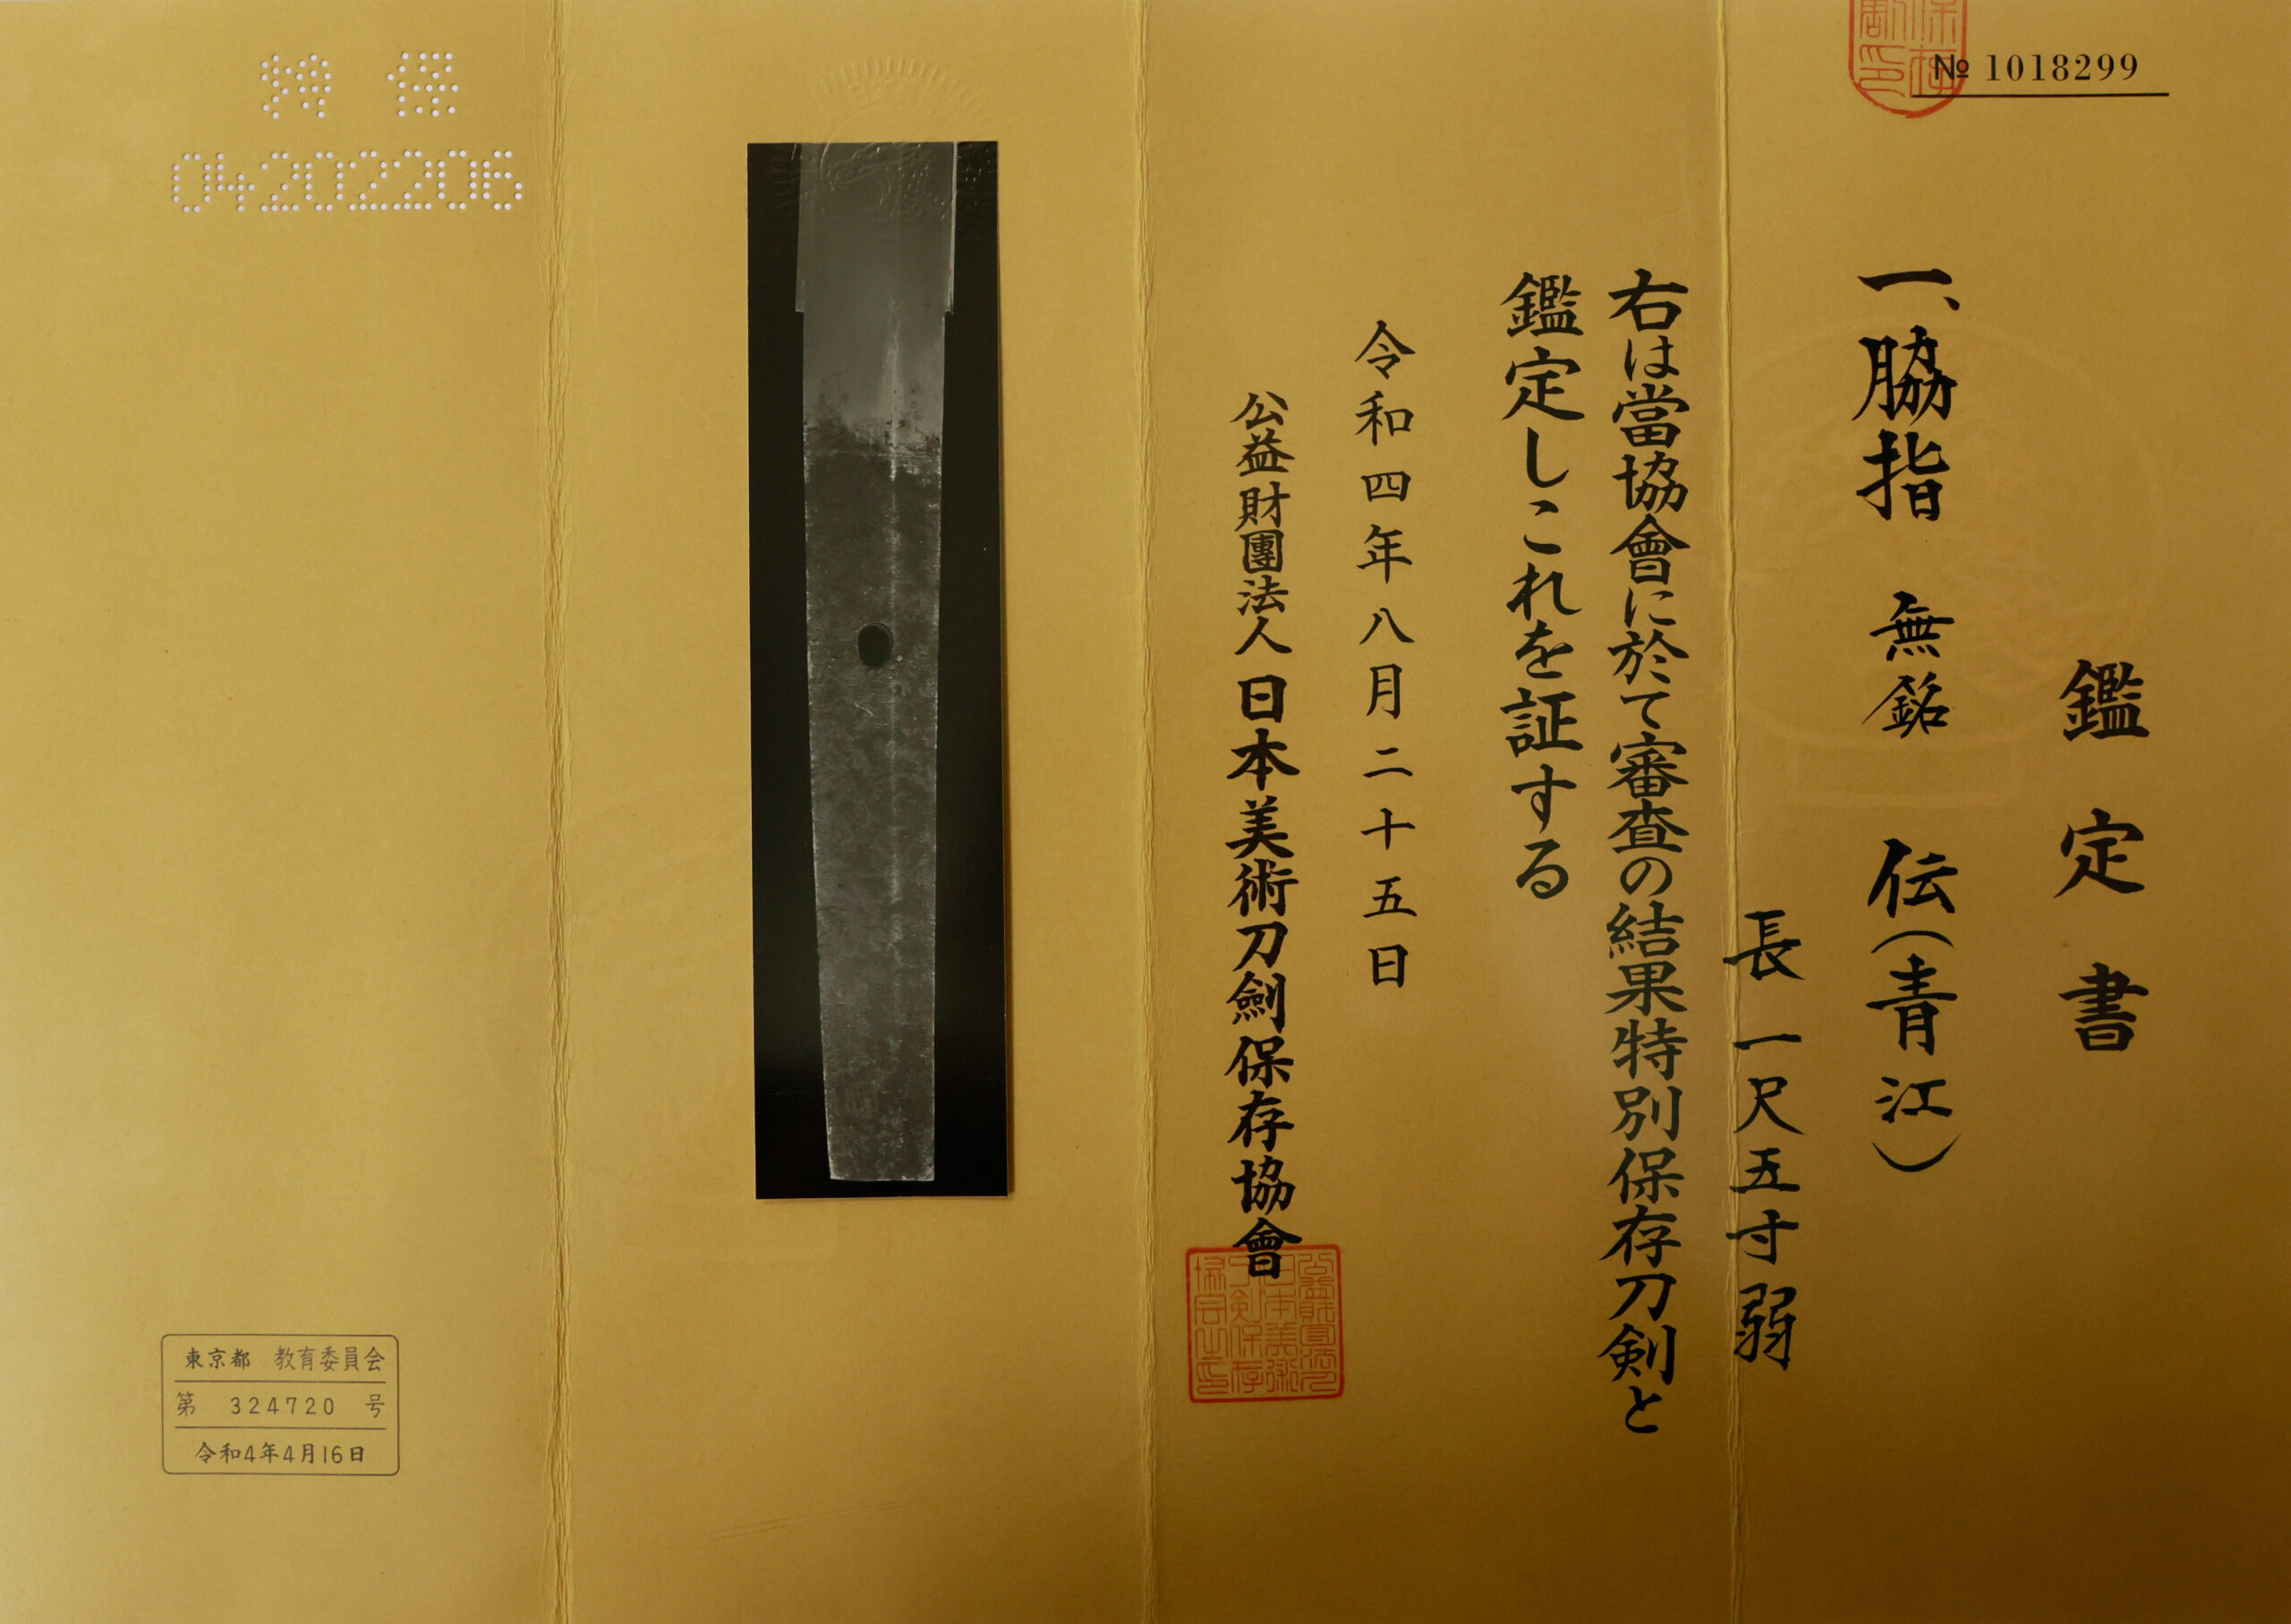 № 1018299
鑑定書
一、脇指 無銘 伝(青江)
長 一尺五寸弱
右は當協會に於て審査の結果特別保存刀剣と
鑑定しこれを証する
令和四年八月二十五日
公益財團法人 日本美術刀劍保存協會
特 保
04202206
東京都 教育委員会
第 324720 号
令和4年4月16日